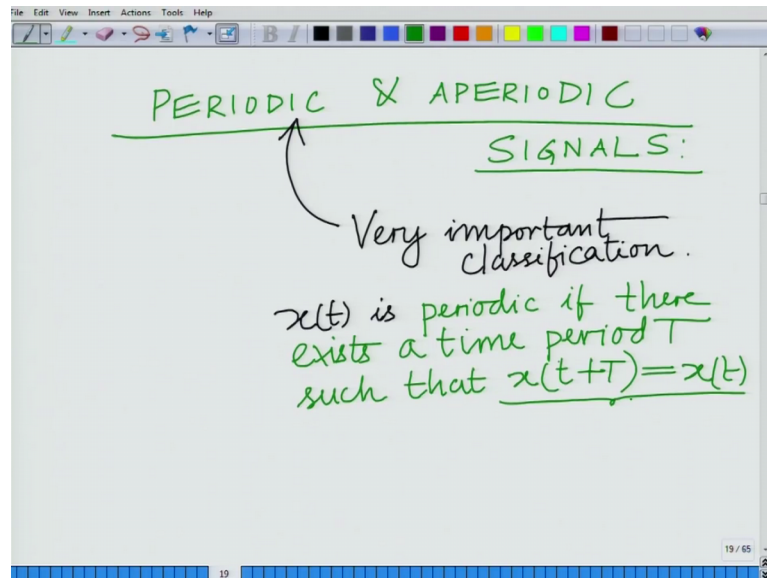 File Edit View Insert Actions Tools Help
B I
PERIODIC & APERIODIC
SIGNALS:
Very important
classification.
x(t) is periodic if there
exists a time period T
such that x(t+T)=x(t)
19 / 65
19